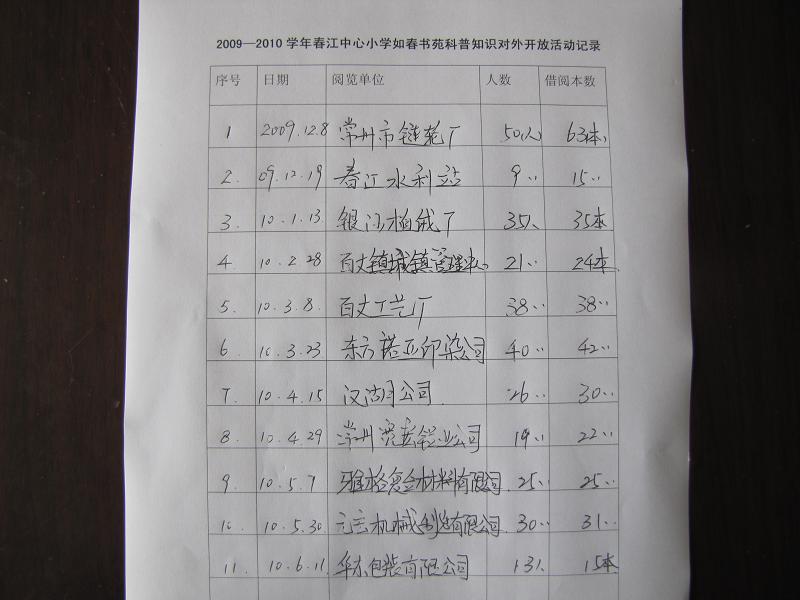 2009—2010 学年春江中心小学如春书苑科普知识对外开放活动记录
序号 日期 阅览单位 人数 借阅本数
1 2009.12.8 常州市链轮厂 50(人) 63本
2. 09.12.19 春江水利站 9〃 15〃
3. 10.1.13 银河植绒厂 35人 35本
4. 10.2.28 百丈镇城镇管理中心 21〃 24本
5. 10.3.8. 百丈工艺厂 38〃 38〃
6 10.3.23 东方诺亚印染公司 40〃 42〃
7. 10.4.15 汉湖公司. 26〃 30〃
8. 10.4.29 常州 铝业公司 19〃 22〃
9. 10.5.7 雅格复合材料有限公司. 25〃 25〃
10. 10.5.30 机械制造有限公司. 30〃 31〃
11. 10.6.11 华东包装有限公司 13人 15本